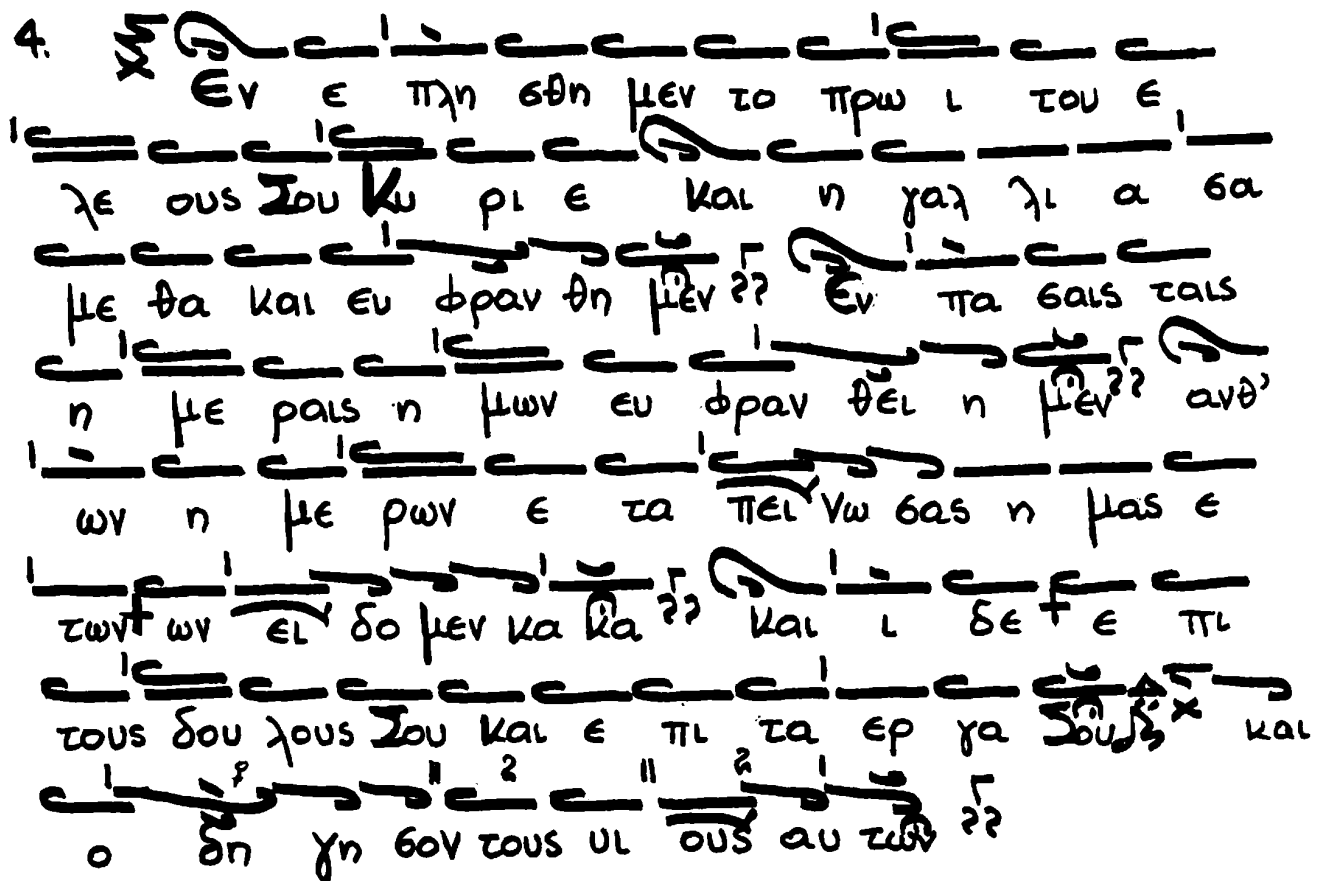 4. Εν ε πλη σθη μεν το πρω ι του ε
λε ους Σου Κυ ρι ε και η γαλ λι α σα
με θα και ευ φραν θη μεν Εν πα σαις ταις
η με ραις η μων ευ φραν θει η μεν ανθ'
ων η με ρων ε τα πει νω σας η μας ε
των ων ει δο μεν κα κα και ι δε ε πι
τους δου λους Σου και ε πι τα ερ γα Σου και
ο δη γη σον τους υι ους αυ των